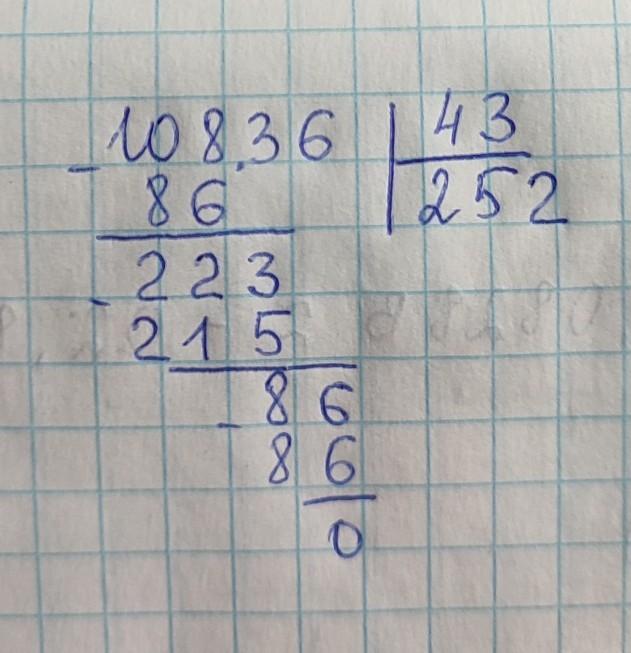 - 108.36 | 43
86 | 252
- 223
215
- 86
86
0